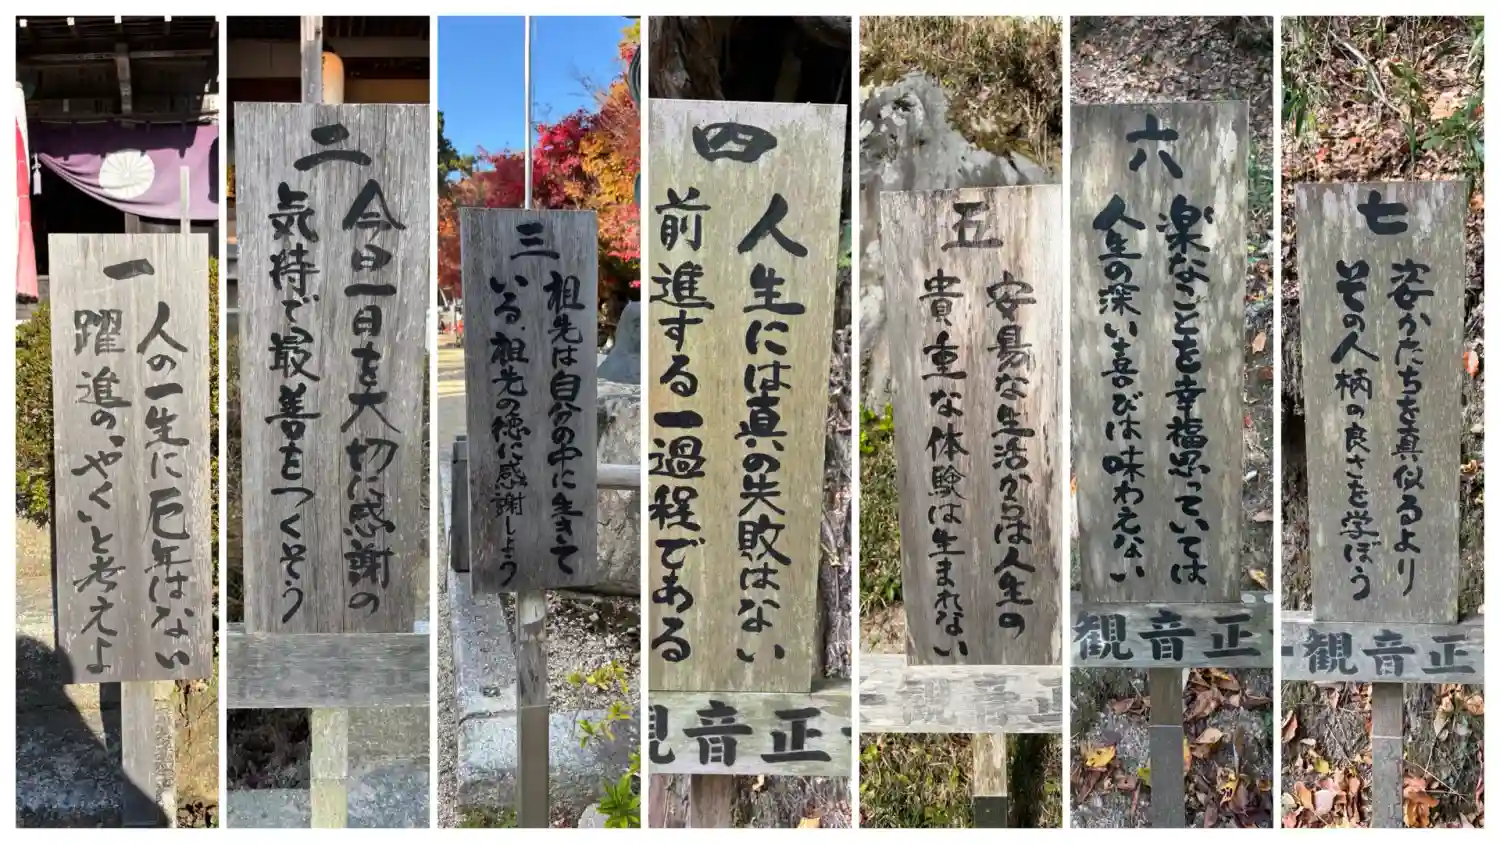 一
人の一生に厄年はない
躍進の“やく”と考えよ
二
今日一日を大切に感謝の
気持で最善をつくそう
三
祖先は自分の中に生きて
いる、祖先の徳に感謝しよう
四
人生には真の失敗はない
前進する一過程である
観音正
五
安易な生活からは人生の
貴重な体験は生まれない
六
楽なことを幸福思っていては
人生の深い喜びは味わえない
観音正
七
姿かたちを真似るより
その人柄の良さを学ぼう
観音正